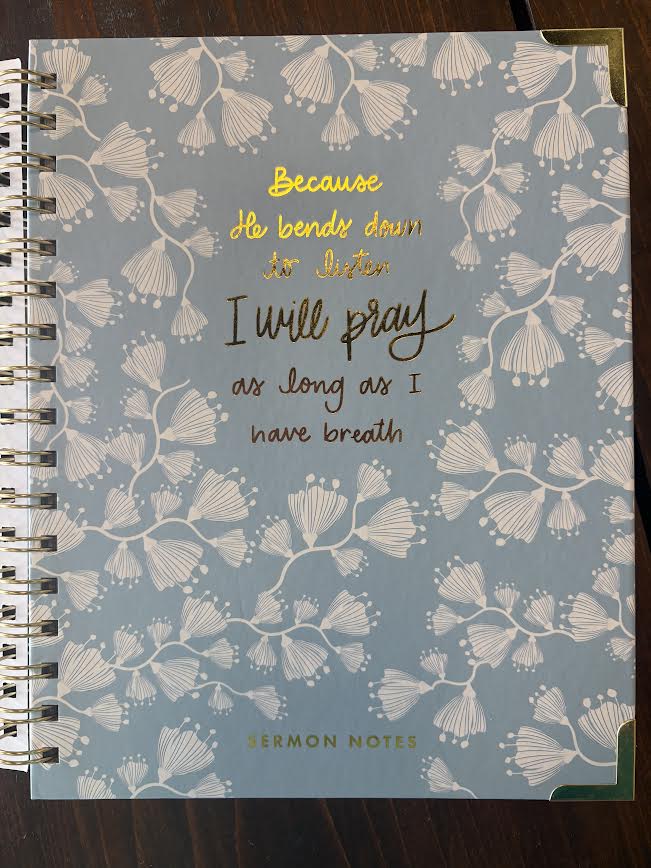 Because
He bends down
to listen
I will pray
as long as I
have breath
SERMON NOTES